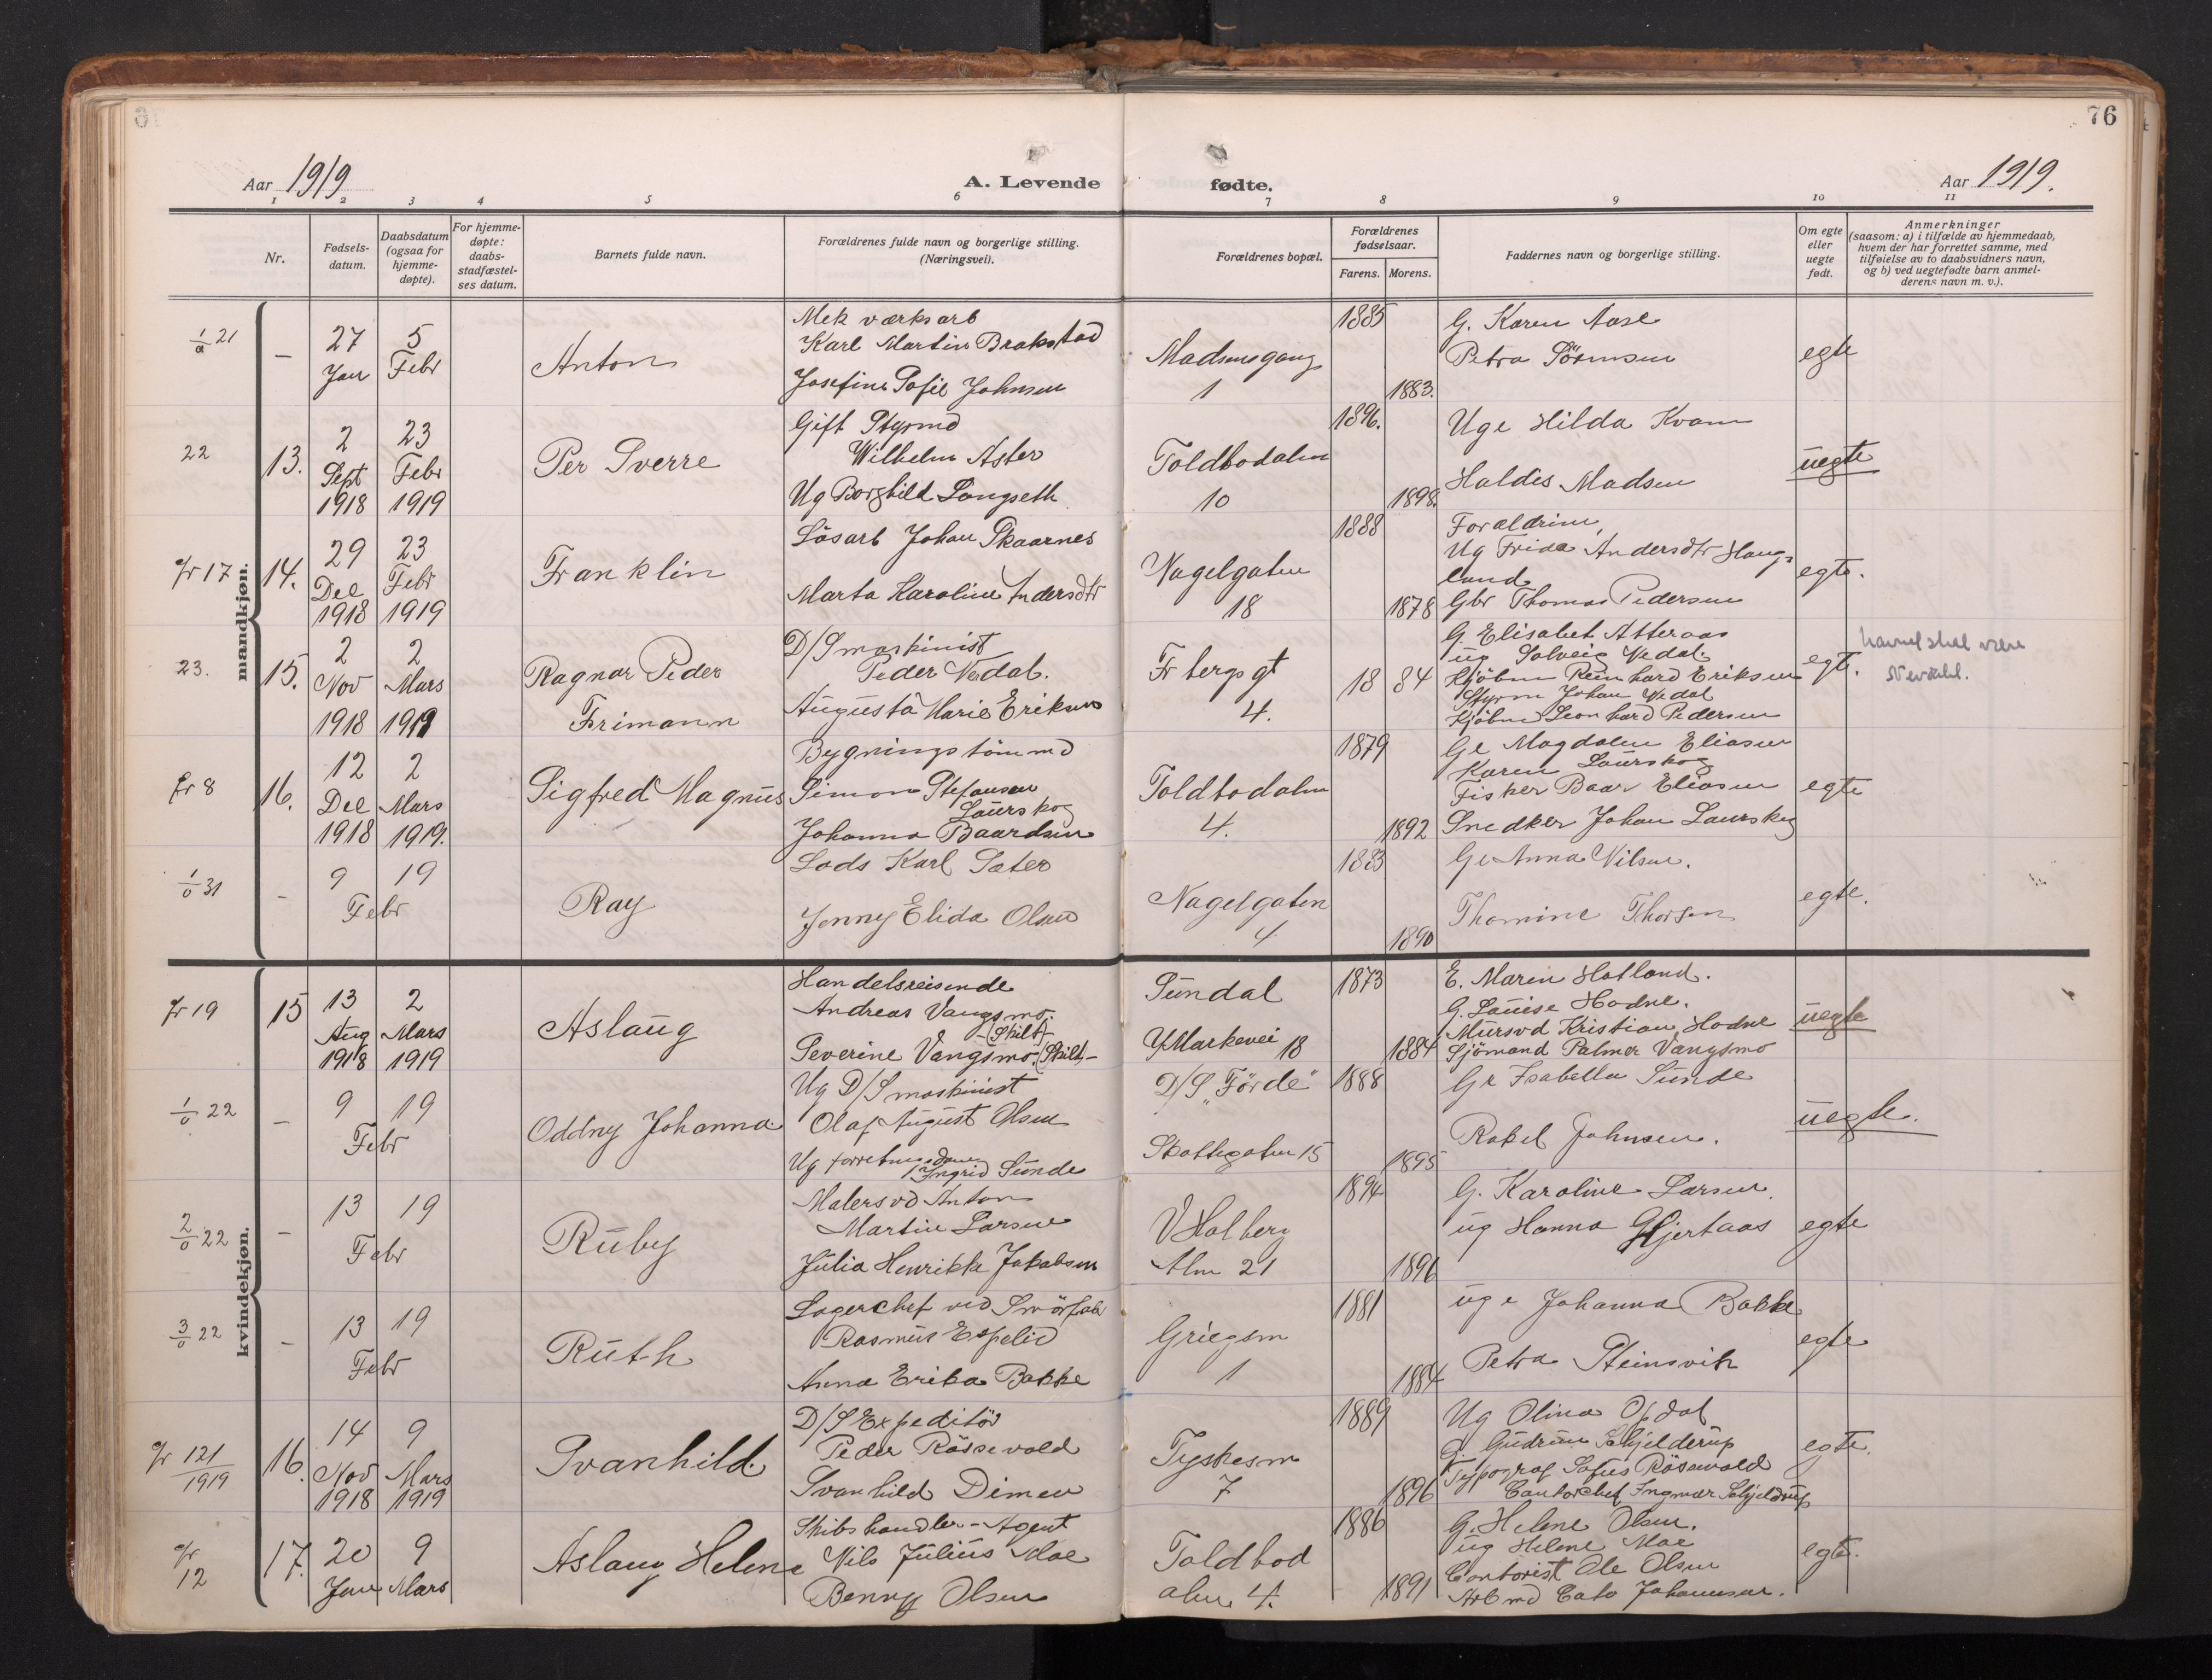 76
Aar 1919
A. Levende
fødte.
Aar 1919.
1 2 3 4 5 6 7 8 9 10 11
Nr.
Fødsels-
datum.
Daabsdatum
(ogsaa for
hjemme-
døpte).
For hjemme-
døpte:
daabs-
stadfæstel-
ses datum.
Barnets fulde navn.
Forældrenes fulde navn og borgerlige stilling.
(Næringsvei).
Forældrenes bopæl.
Forældrenes
fødselsaar.
Farens. Morens.
Faddernes navn og borgerlige stilling.
Om egte
eller
uegte
født.
Anmerkninger
(saasom: a) i tilfælde av hjemmedaab,
hvem der har forrettet samme, med
tilføielse av to daabsvidners navn,
og b) ved uegtefødte barn anmel-
derens navn m. v.).
mandkjøn.
21
–
27
Jan
5
Febr
Anton
Mek værksarb
Karl Martin Brakstad
Josefine Sofie Johnsen
Madsensgang
1
1885
1883.
G. Karen Aase
Petra Sörensen
egte
22
13.
2
Sept
1918
23
Febr
1919
Per Sverre
Gift Styrmd
Wilhelm Aster
Ug Borghild Langseth
Toldbodalm
10
1896.
1898.
Uge Hilda Kvam
Haldis Madsen
uegte
17
14.
29
Dec
1918
23
Febr
1919
Franklin
Lösarb Johan Skaarnes
Marta Karoline Andersdtr
Nagelgaten
18
1888
1878
Forældrene,
Ug Frida Andersdtr Haug-
land
Gbr Thomas Pedersen
egte.
23.
15.
2
Nov
1918
2
Mars
1919
Ragnar Peder
Frimann
D/S maskinist
Peder Vedal.
Augusta Marie Eriksen
Fr bergs gt
4.
18 84
G. Elisabet Atteraas
ug Solveig Vedal
Kjöbm Reinhard Eriksen
Styrm Johan Vedal
Kjöbm Leonhard Pedersen
egte.
Navnet skal være
8
16.
12
Dec
1918
2
Mars
1919.
Sigfred Magnus
Bygningstömmd
Simon Stefansen
Laurskog
Johanna Baardsen
Toldbodalm
4.
1879
1892
Ge Magdalen Eliasen
Karen Laurskog
Fisker Baar Eliasen
Snedker Johan Laurskog
egte
1/0 31
–
9 19
Febr
Ray
Lods Karl Sæter
Jenny Elida Olsen
Nagelgaten
4
1883
1890
Ge Anna Nilsen.
Thomine Thorsen
egte.
kvindekjøn.
19
15
13
Aug
1918
2
Mars
1919
Aslaug
Handelsreisende
Andreas Vangsmo.
(Skilt)
Severine Vangsmo (Skilt)
Sundal
Y Markevei 18
1873
1884
E. Maren Hatland.
G. Louise Hodne.
Mursvd Kristian Hodne
Sjömand Palmer Vangsmo
uegte
1/0 22
–
9 19
Febr
Oddny Johanna
Ug D/S maskinist
Olaf August Olsen
Ug forretningsdame
Ingrid Sunde
D/S "Förde"
Skottegaten 15
1888
1895
Ge Isabella Sunde
Rakel Johnsen.
uegte.
2/0 22
–
13 19
Febr
Ruby
Malersvd Anton
Martin Larsen
Julia Henrikke Jakobsen
V Holberg
Alm 21
1894
1896
G. Karoline Larsen.
ug Hanna Gjertaas
egte
3/0 22
–
13 19
Febr
Ruth
Lagerchef ved Smörfabr
Rasmus Espelid
Anna Erika Bakke
Griegsm
1
1881
1884
uge Johanna Bakke
Petra Steinsvik
egte
121
1919
16.
14
Nov
1918
9
Mars
1919
Svanhild.
D/S Expeditör
Peder Rössevold
Svanhild Dimen
Tyskesm
7
1889
1896
Ug Olina Opdal
G Gudrun Schjelderup
Typograf Sofus Rösevold
Contorchef Ingvar Schjelderup
egte.
12
17.
20
Jan
9
Mars
Aslaug Helene
Skibshandler-Agent
Nils Julius Moe
Benny Olsen
Toldbod
alm 4.
1886
1891
G. Helene Olsen.
ug Helene Moe
Contorist Ole Olsen
Arbmd Cato Johannesen.
egte.